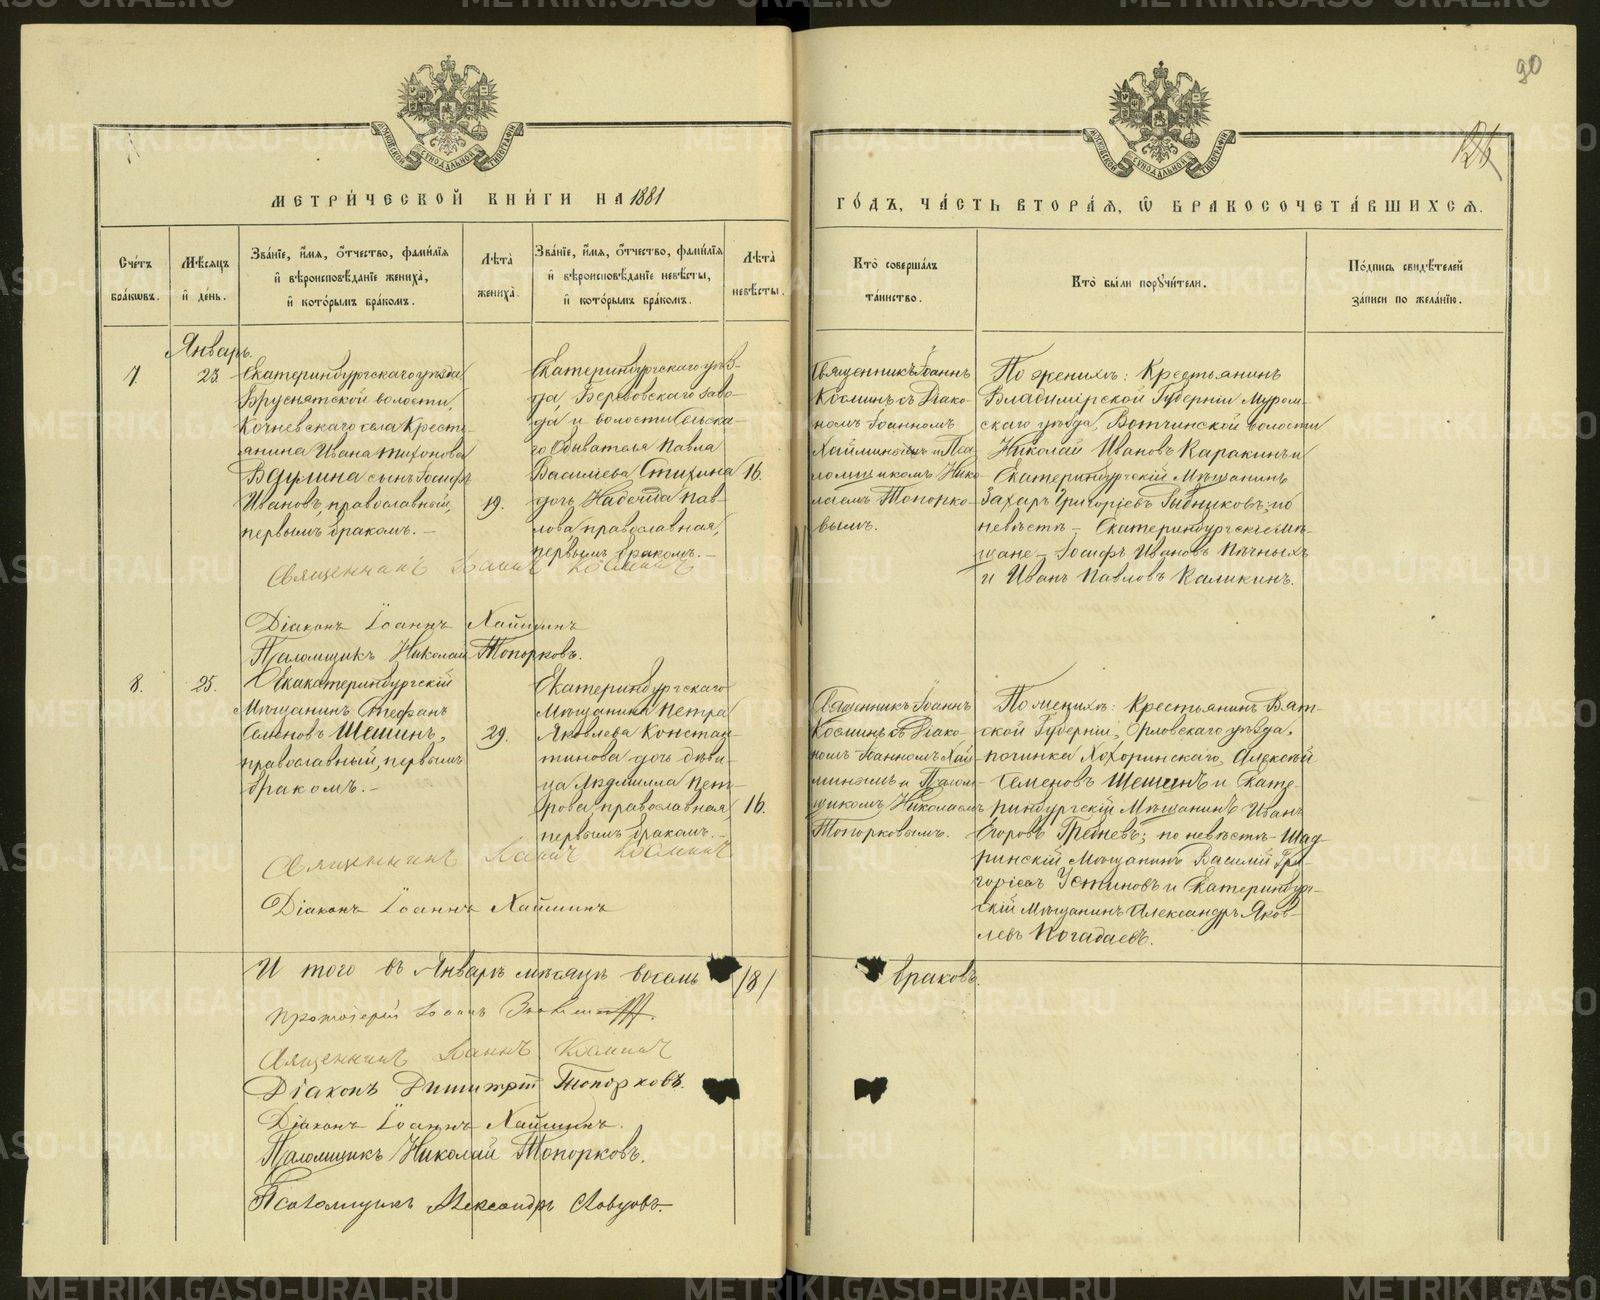 90
126
МЕТРИ́ЧЕСКОЙ КНИ́ГИ НА 1881
ГО́ДЪ, ЧА́СТЬ ВТОРА́Я, Ѿ БРАКОСОЧЕТА́ВШИХСЯ.
Сче́тъ бра́кѡвъ.
Мѣ́сяцъ и́ де́нь.
Зва́нїе, и́мя, о́тчество, фами́лїя
и́ вѣроисповѣ́данїе жениха̀,
и́ кото́рымъ бра́комъ.
Лѣта̀ жениха̀.
Зва́нїе, и́мя, о́тчество, фами́лїя
и́ вѣроисповѣ́данїе невѣ́сты,
и́ кото́рымъ бра́комъ.
Лѣта̀ невѣ́сты.
Кто̀ соверша́лъ та́инство.
Кто̀ бы́ли порꙋчи́тели.
По́дпись свидѣ́телей за́писи по жела́нїю.
Январь.
7.
23.
Екатеринбургскаго уѣзда,
Бруснятской волости,
Кочневскаго села Кресть-
янина Ивана Тихонова
сынъ Іосифъ
Ивановъ, православный,
первымъ бракомъ. —
19.
Екатеринбургскаго уѣз-
да Березовскаго заво-
да и волости Сельска-
го Обывателя Павла
Васильева Стихина
дочь Надежда Пав-
лова, православная,
первымъ бракомъ. —
16.
Священникъ Іоаннъ
Косминъ съ Діако-
номъ Іоанномъ
Хайминымъ и Пса-
ломщикомъ Нико-
лаемъ Топорко-
вымъ.
По женихѣ: Крестьянинъ
Владимірской Губерніи Муром-
скаго уѣзда, Вотчинской волости
Николай Ивановъ Каракинъ и
Екатеринбургскій Мѣщанинъ
Захаръ Григорьевъ Рыбниковъ; по
невѣстѣ — Екатеринбургскіе Мѣ-
щане — Іосифъ Ивановъ Пѣчныхъ
и Иванъ Павловъ Каликинъ.
Священникъ Іоаннъ Косминъ
Діаконъ Іоаннъ Хайминъ
Псаломщикъ Николай Топорковъ.
8.
25.
Екакатеринбургскій
Мѣщанинъ Стефанъ
Семеновъ Шешинъ,
православный, первымъ
бракомъ. —
29.
Екатеринбургскаго
Мѣщанина Петра
Яковлева Констан-
тинова дочь дѣви-
ца Людмилла Пет-
рова, православная,
первымъ бракомъ. —
16.
Священникъ Іоаннъ
Косминъ съ Діако-
номъ Іоанномъ Хай-
минымъ и Псалом-
щикомъ Николаемъ
Топорковымъ.
По женихѣ: Крестьянинъ Вят-
ской Губерніи, Орловскаго уѣзда,
починка Хохоринскаго, Алексѣй
Семеновъ Шешинъ и Екате-
ринбургскій Мѣщанинъ Иванъ
Егоровъ Гребневъ; по невѣстѣ — Шад-
ринскій Мѣщанинъ Василій Гри-
горьевъ Устиновъ и Екатеринбург-
скій Мѣщанинъ Александръ Яков-
левъ Погадаевъ.
Священникъ Іоаннъ Косминъ
Діаконъ Іоаннъ Хайминъ
И того въ Январѣ мѣсяцѣ восемь /8/ браковъ.
Протоіерей Іоаннъ
Священникъ Іоаннъ Косминъ
Діаконъ Димитрій Топорковъ.
Діаконъ Іоаннъ Хайминъ.
Псаломщикъ Николай Топорковъ.
Псаломщикъ Александръ Словцовъ.
METRIKI.GASO-URAL.RU